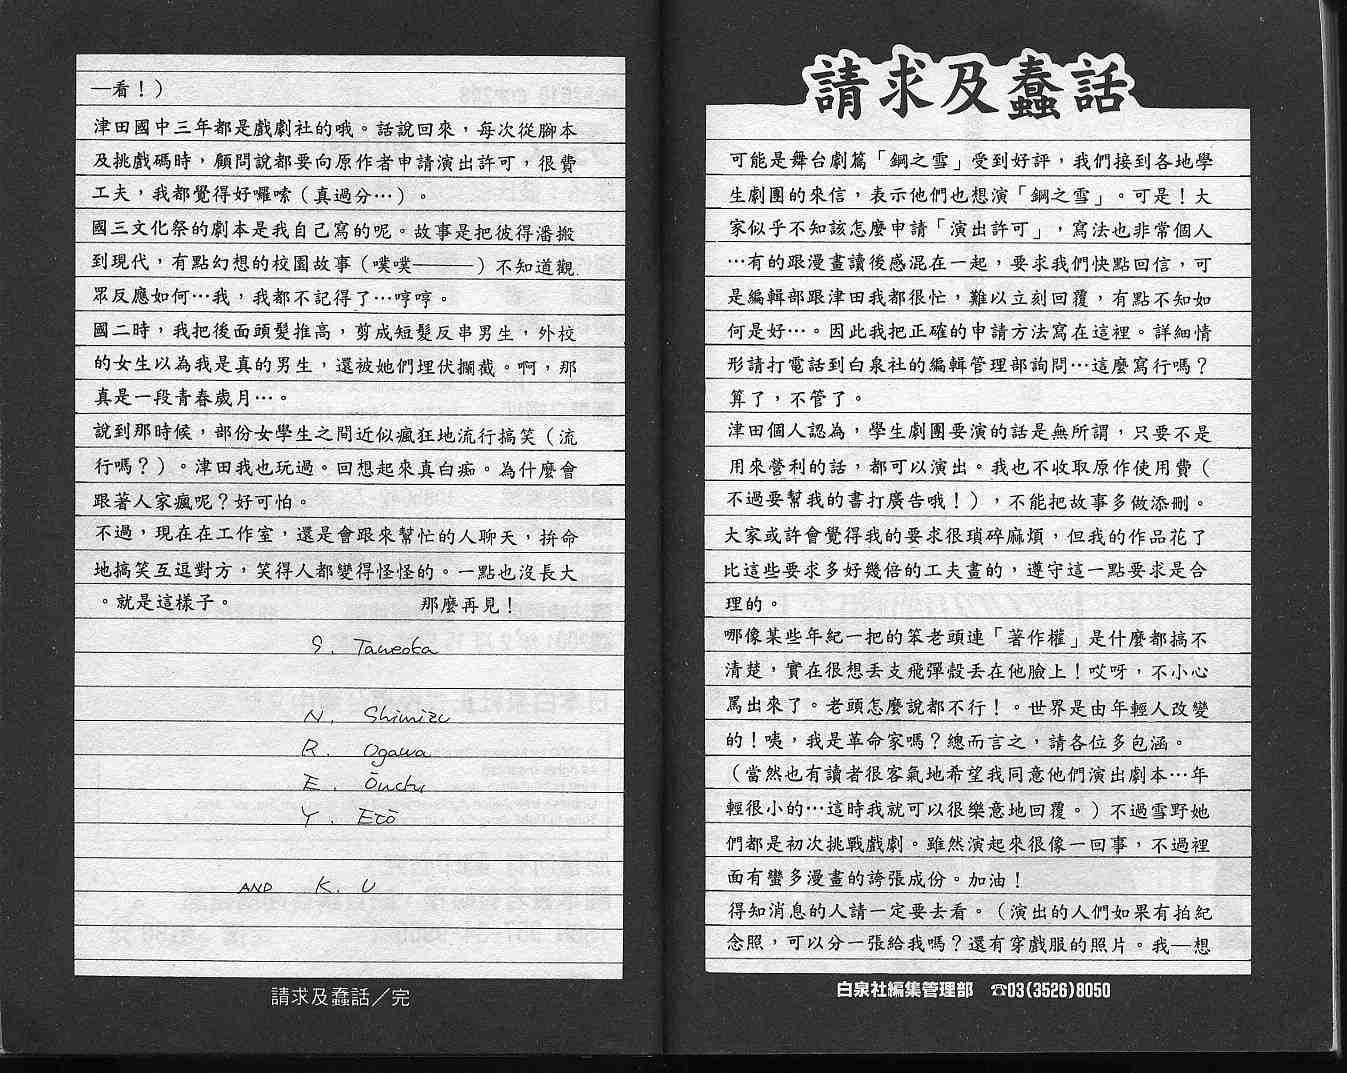 請求及蠢話
可能是舞台劇篇「鋼之雪」受到好評，我們接到各地學
生劇團的來信，表示他們也想演「鋼之雪」。可是！大
家似乎不知該怎麼申請「演出許可」，寫法也非常個人
…有的跟漫畫讀後感混在一起，要求我們快點回信，可
是編輯部跟津田我都很忙，難以立刻回覆，有點不知如
何是好…。因此我把正確的申請方法寫在這裡。詳細情
形請打電話到白泉社的編輯管理部詢問…這麼寫行嗎？
算了，不管了。
津田個人認為，學生劇團要演的話是無所謂，只要不是
用來營利的話，都可以演出。我也不收取原作使用費（
不過要幫我的書打廣告哦！），不能把故事多做添刪。
大家或許會覺得我的要求很瑣碎麻煩，但我的作品花了
比這些要求多好幾倍的工夫畫的，遵守這一點要求是合
理的。
哪像某些年紀一把的笨老頭連「著作權」是什麼都搞不
清楚，實在很想丟支飛彈殼丟在他臉上！哎呀，不小心
罵出來了。老頭怎麼說都不行！。世界是由年輕人改變
的！咦，我是革命家嗎？總而言之，請各位多包涵。
（當然也有讀者很客氣地希望我同意他們演出劇本…年
輕很小的…這時我就可以很樂意地回覆。）不過雪野她
們都是初次挑戰戲劇。雖然演起來很像一回事，不過裡
面有蠻多漫畫的誇張成份。加油！
得知消息的人請一定要去看。（演出的人們如果有拍紀
念照，可以分一張給我嗎？還有穿戲服的照片。我—想
白泉社編集管理部　☎03(3526)8050
—看！）
津田國中三年都是戲劇社的哦。話說回來，每次從腳本
及挑戲碼時，顧問說都要向原作者申請演出許可，很費
工夫，我都覺得好囉嗦（真過分…）。
國三文化祭的劇本是我自己寫的呢。故事是把彼得潘搬
到現代，有點幻想的校園故事（噗噗———）不知道觀
眾反應如何…我，我都不記得了…哼哼。
國二時，我把後面頭髮推高，剪成短髮反串男生，外校
的女生以為我是真的男生，還被她們埋伏攔截。啊，那
真是一段青春歲月…。
說到那時候，部份女學生之間近似瘋狂地流行搞笑（流
行嗎？）。津田我也玩過。回想起來真白痴。為什麼會
跟著人家瘋呢？好可怕。
不過，現在在工作室，還是會跟來幫忙的人聊天，拚命
地搞笑互逗對方，笑得人都變得怪怪的。一點也沒長大
。就是這樣子。　　　　那麼再見！
S. Taneoka
N. Shimizu
R. Ogawa
E. Ōuchi
Y. Etō
AND K. U
請求及蠢話／完